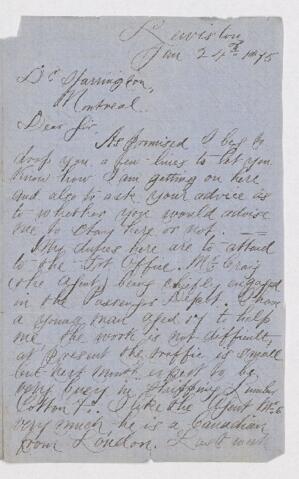 Lewiston
Jan 24th 1875
Dr Harrington,
Montreal.
Dear Sir
As promised I beg to
drop you a few lines to let you
know how I am getting on here
and also to ask your advice as
to whether you would advise
me to stay here or not.
My duties here are to attend
to the Frt Office. Mr Craig
(the Agent) being chiefly engaged
in the Passenger Dept. I have
a young man aged 17 to help
me the work is not difficult,
at present the traffic is small
but next month expect to be
very busy in shipping Lumber
Cotton &c. I like the Agent
very much he is a Canadian
from London. Last week